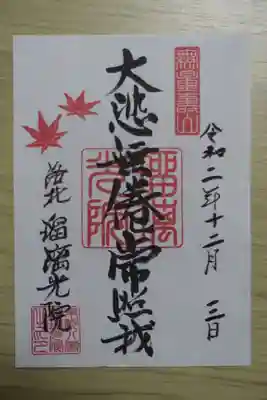 令和二年十二月 三日
大悲無倦常照我
瑠璃光院
洛北 瑠璃光院